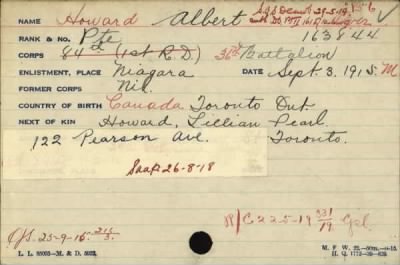 NAME Howard Albert
RANK & NO. Pte 163844
CORPS 84th (1st R.D.) 36th Battalion
ENLISTMENT, PLACE Niagara DATE Sept. 3. 1915 M
FORMER CORPS Nil.
COUNTRY OF BIRTH Canada Toronto Ont.
NEXT OF KIN Howard, Lillian Pearl.
122 Pearson Ave. Toronto.
26-8-18
R/C 22-5-19 331/19 Gpl.
O/S. 25-9-15
L. L. 55005—M. & D. 5022.
M. F. W. 22.—50m.—9-15.
H. Q. 1772-39-839.